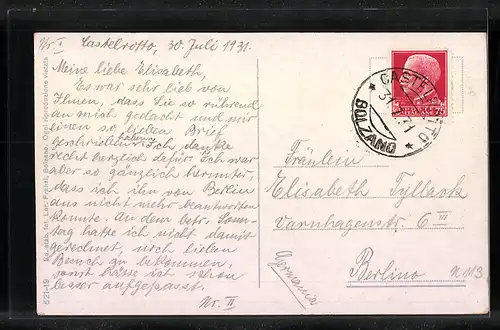 Nr. I Castelrotto, 30. Juli 1931.
Meine liebe Elisabeth,
Es war sehr lieb von
Ihnen, dass Sie so rührend
an mich gedacht und mir
einen so lieben Brief
geschrieben haben. Ich danke
recht herzlich dafür. Ich war
aber so gänzlich herunter,
dass ich ihn von Berlin
aus nicht mehr beantworten
konnte. An dem betr. Sonn-
tag hatte ich nicht damit
gerechnet, noch lieben
Besuch zu bekommen,
sonst hätte ich schon
besser aufgepasst.
Nr. II
Fräulein
Elisabeth Tyllack
Varnhagenstr. 6 III
Berlino N 113
(Germania)
CASTELROTTO
BOLZANO
ITALIANE
75
521-19
Ogni riproduzione vietata